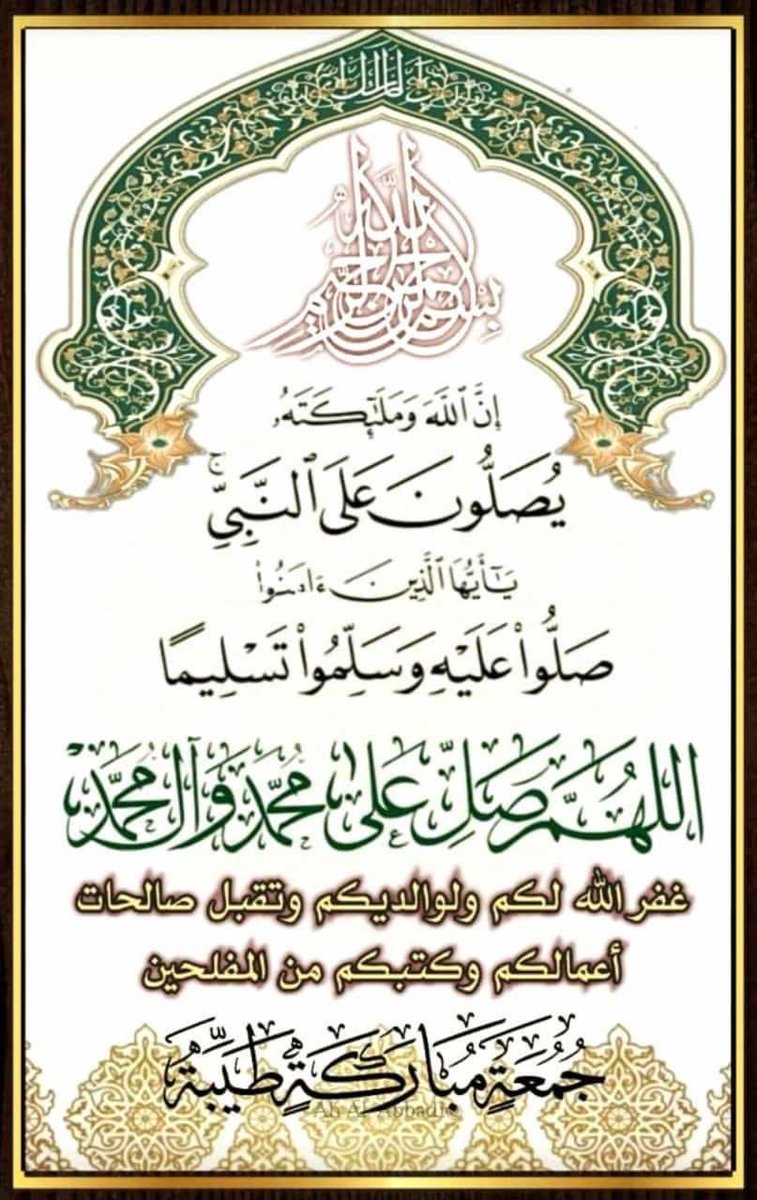 بِسْمِ اللَّهِ الرَّحْمَٰنِ الرَّحِيمِ
إِنَّ ٱللَّهَ وَمَلَـٰٓئِكَتَهُۥ
يُصَلُّونَ عَلَى ٱلنَّبِىِّۚ
يَـٰٓأَيُّهَا ٱلَّذِينَ ءَامَنُوا۟
صَلُّوا۟ عَلَيْهِ وَسَلِّمُوا۟ تَسْلِيمًا
اللهُمَّ صَلِّ عَلى مُحَمَّدٍ وَآلِ مُحَمَّدٍ
غفر الله لكم ولوالديكم وتقبل صالحات
أعمالكم وكتبكم من المفلحين
جُمُعَةٍ مُبَارَكَةٍ طَيِّبَةٍ